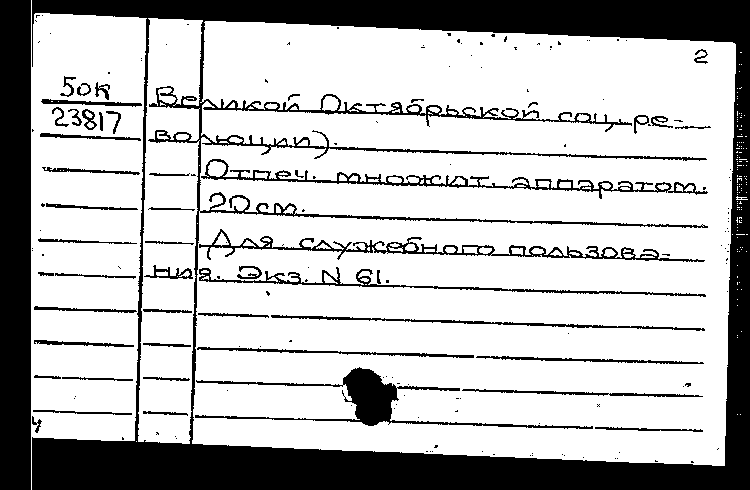 2
50к
23817
Великой Октябрьской соц. ре-
волюции).
Отпеч. множит. аппаратом.
20см.
Для служебного пользова-
ния. Экз. N 61.